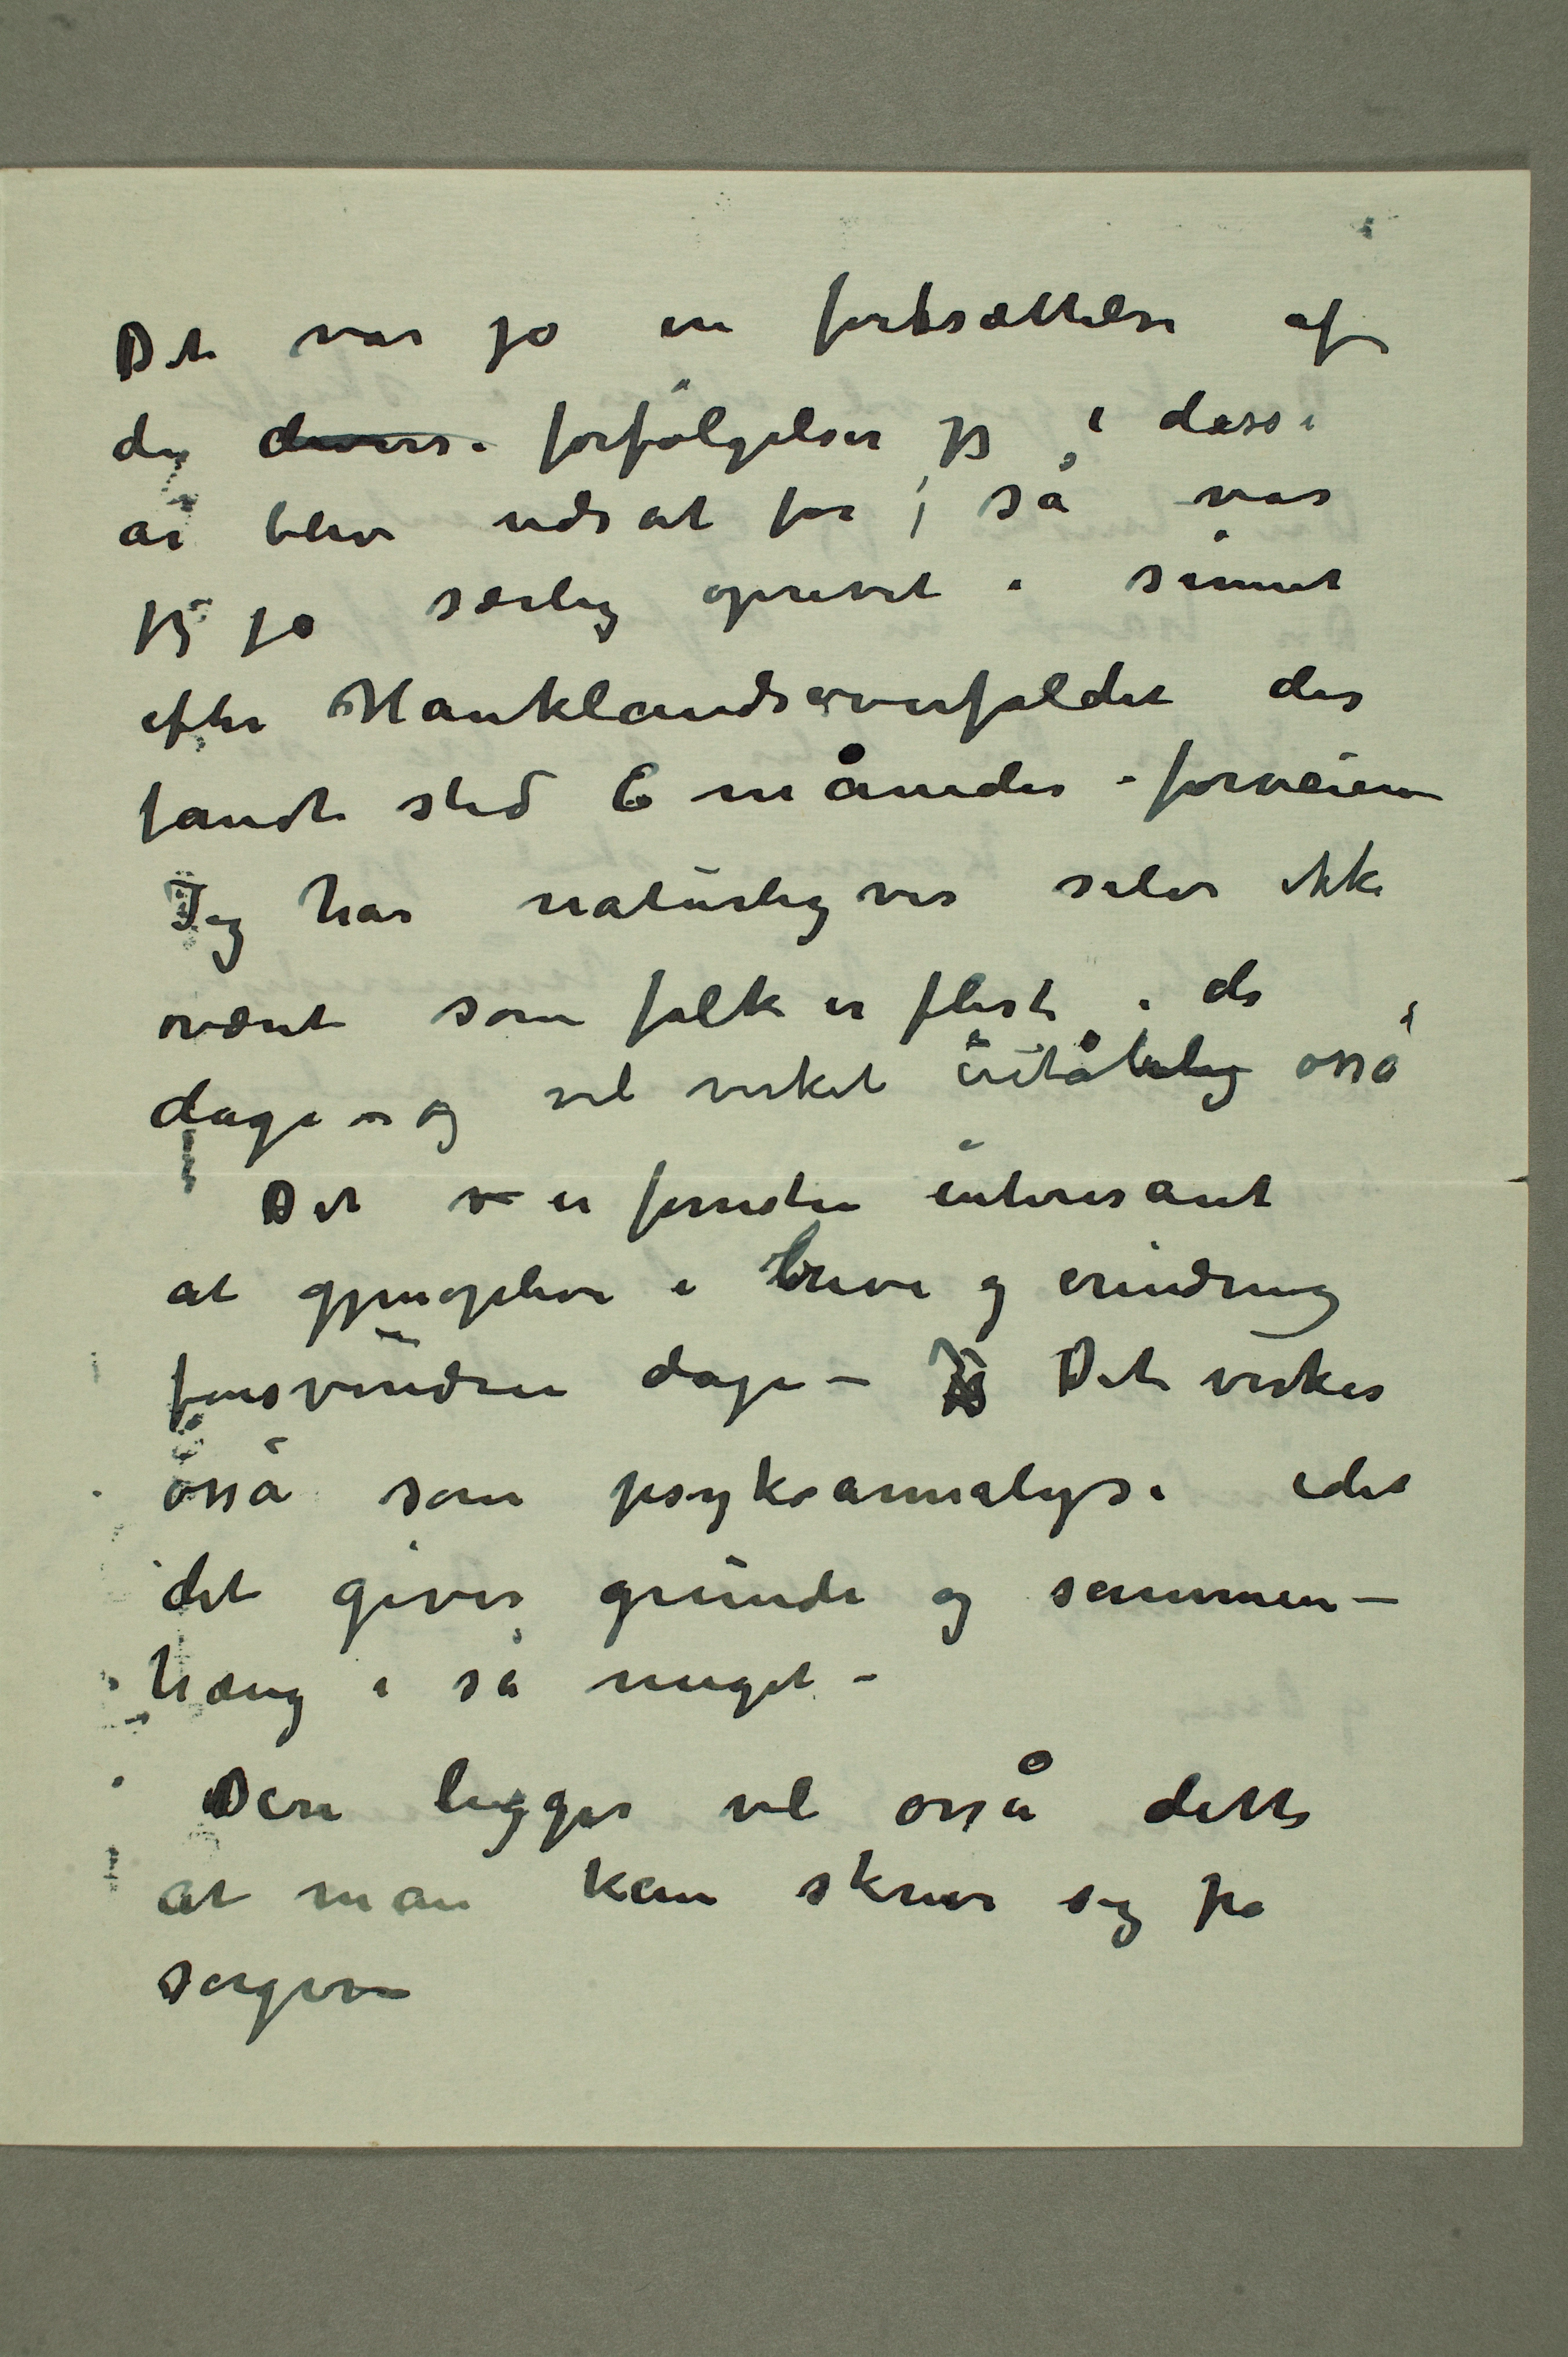 Det var jo en fortsættelse af
de diverse forfølgelser jeg i disse
år blev udsat for, så var
jeg jo særlig oprevet i sinnet
efter Hauklandsoverfaldet der
fandt sted 6 måneder i forveien
Jeg har naturligvis selv ikke
været som folk er flest i de
dage – og vel virket utålelig også
Det er forresten interesant
at gjenopleve i breve og erindring
forsvundne dage – Det virker
også som psykoannalyse idet
det giver grunde og sammen–
hæng i så meget –
Deri ligger vel også dette
at man kan skrive sig fra
sorgen